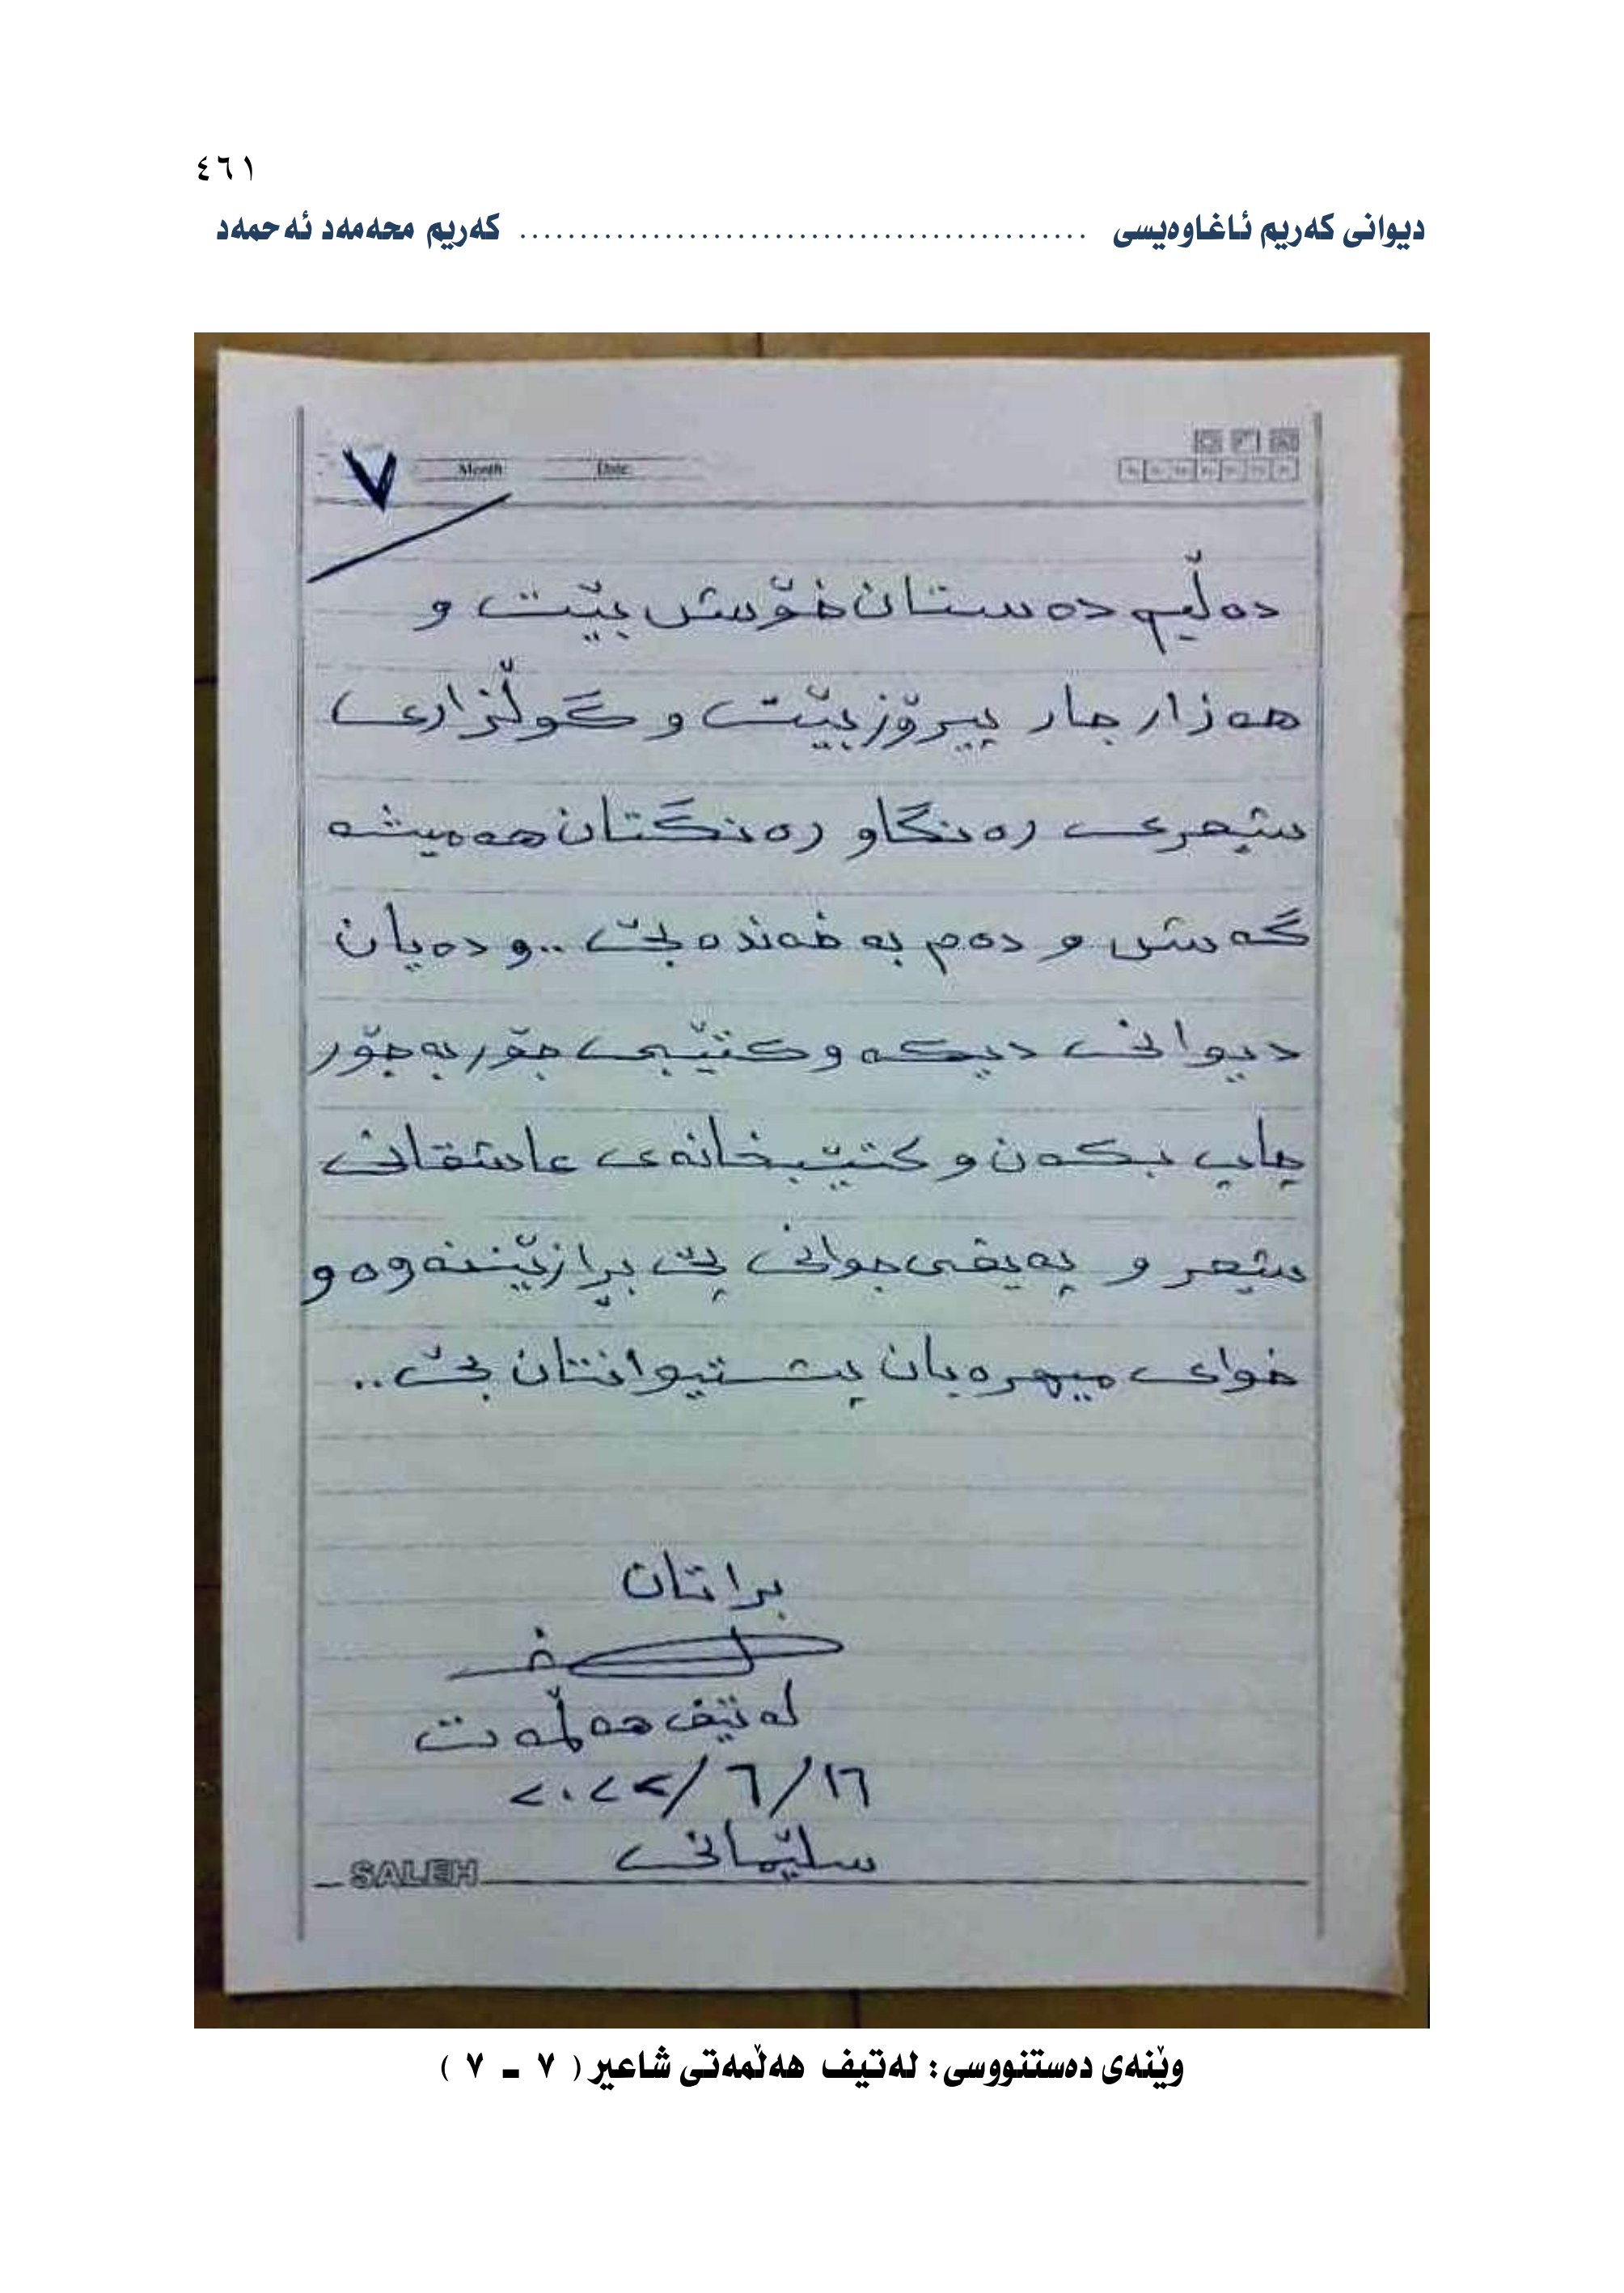 ٤٦١
دیوانی کەریم ئاغاوەیسی ............................................... کەریم محەمەد ئەحمەد
٧
Month Date
دەڵێم دەستان خۆش بێت و
هەزار جار پیرۆز بێت و گوڵزاری
شیعری رەنگاو رەنگتان هەمیشە
گەش و دەم بە خەندە بێ .. و دەیان
دیوانی دیکە و کتێبی جۆر بە جۆر
چاپ بکەن و کتێبخانەی عاشقانی
شیعر و پەیڤی جوانی پێ بڕازێننەوە و
خوای میهرەبان پشتیوانتان بێ ..
براتان
لەتیف هەڵمەت
٢٠٢٢/٦/١٦
سلێمانی
SALEH
وێنەی دەستنووسی: لەتیف هەڵمەتی شاعیر ( ٧ ـ ٧ )